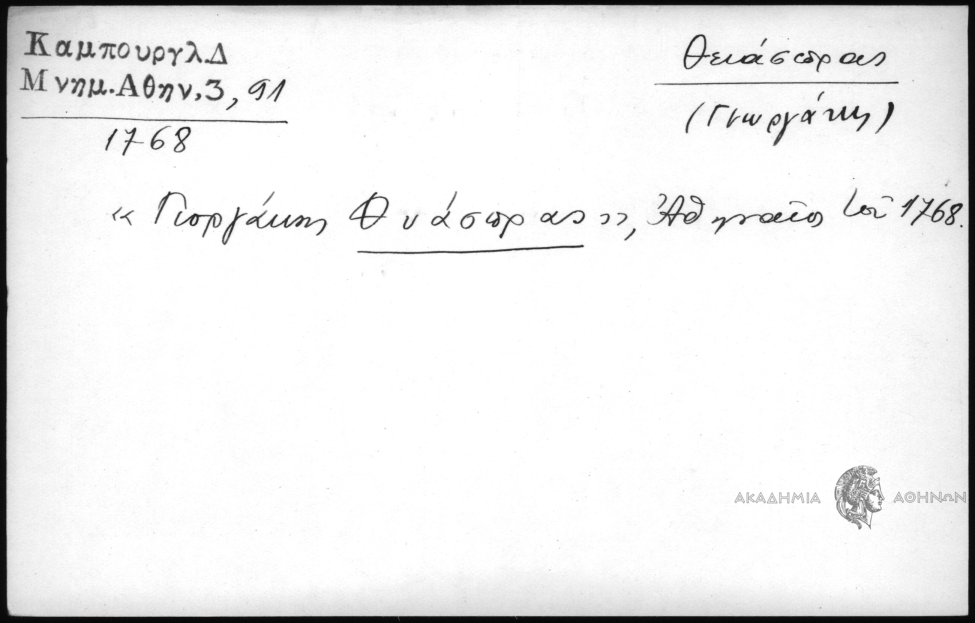 Καμπουργλ.Δ
Μνημ.Αθην.3, 91
1768
Θειάσωρας
(Γεωργάκης)
«Γιοργάκης Θυάσορας», Ἀθηναῖος τοῦ 1768.
ΑΚΑΔΗΜΙΑ ΑΘΗΝΩΝ